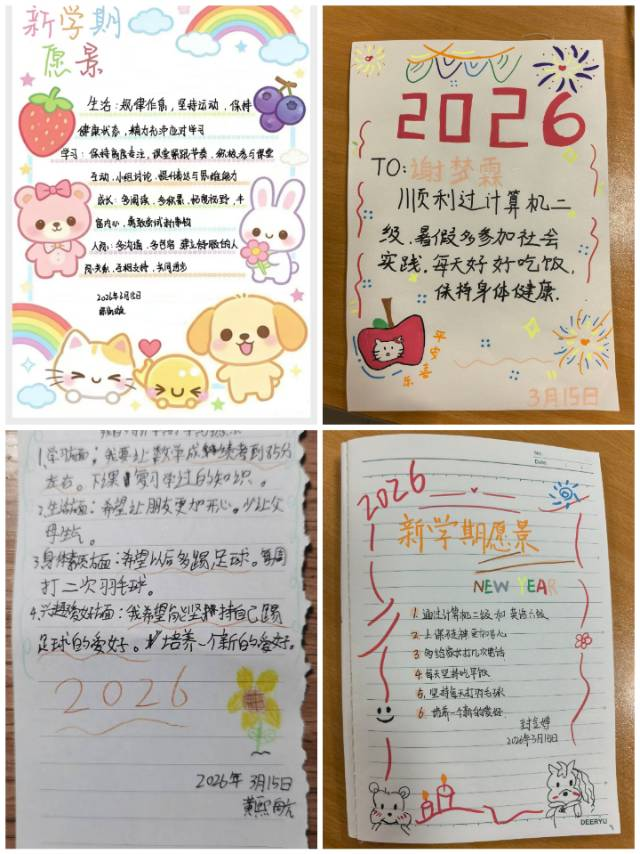 新学期
愿景
生活:规律作息,坚持运动,保持
健康状态,精力充沛应对学习
学习:保持高度专注,课堂紧跟节奏,积极参与课堂
互动,小组讨论,提升表达与思维能力
成长:多阅读,多积累,拓宽视野,丰
富内心,勇敢尝试新事物
人际:多沟通,多包容,建立
互相支持,共同进步
2026年3月
2026
TO:谢梦霖
顺利过计算机二
级,暑假多参加社会
实践,每天好好吃饭,
保持身体健康.
平安喜乐
3月15日
1.学习方面:我要让数学成绩考到85分
左右。下课复习学过的知识。
2.生活方面:希望让朋友更加开心。少让父
母生气。
3.身体素质方面:希望以后多踢足球。每周
打二次羽毛球。
4.兴趣爱好方面:我希望能坚持自己踢
足球的爱好。培养一个新的爱好。
2026
2026年3月15日
黄熙
No.
Date.
2026
新学期愿景
NEW YEAR
1.通过计算机二级和英语六级
2.上课
3.多给家人打几次电话
4.每天坚持吃早饭
5.坚持每天打羽毛球
6.培养一个新的爱好
2026年3月15日
DEERYU